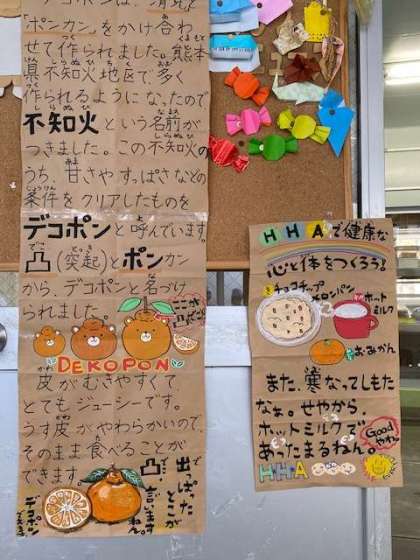 「ポンカン」をかけ合わ
せて作られました。熊本
県不知火地区で多く
作られるようになったので
不知火という名前が
つきました。この不知火の
うち、甘さやすっぱさなどの
条件をクリアしたものを
デコポンと呼んでいます。
凸(突起)とポンカン
から、デコポンと名づけ
られました。
ここが
DEKOPON
皮がむきやすくて、
とてもジューシーです。
うす皮がやわらかいので、
そのまま食べることが
できます。
凸
出っぱった
とこが
言います
ねん。
デコポン
HHAで健康な
心と体をつくろう!
チョコチップ
メロンパン
ホット
ミルク
おみかん
また、寒なってしもた
なぁ。せやから、
ホットミルクで
あったまるねん。
Good
やねん
HHA